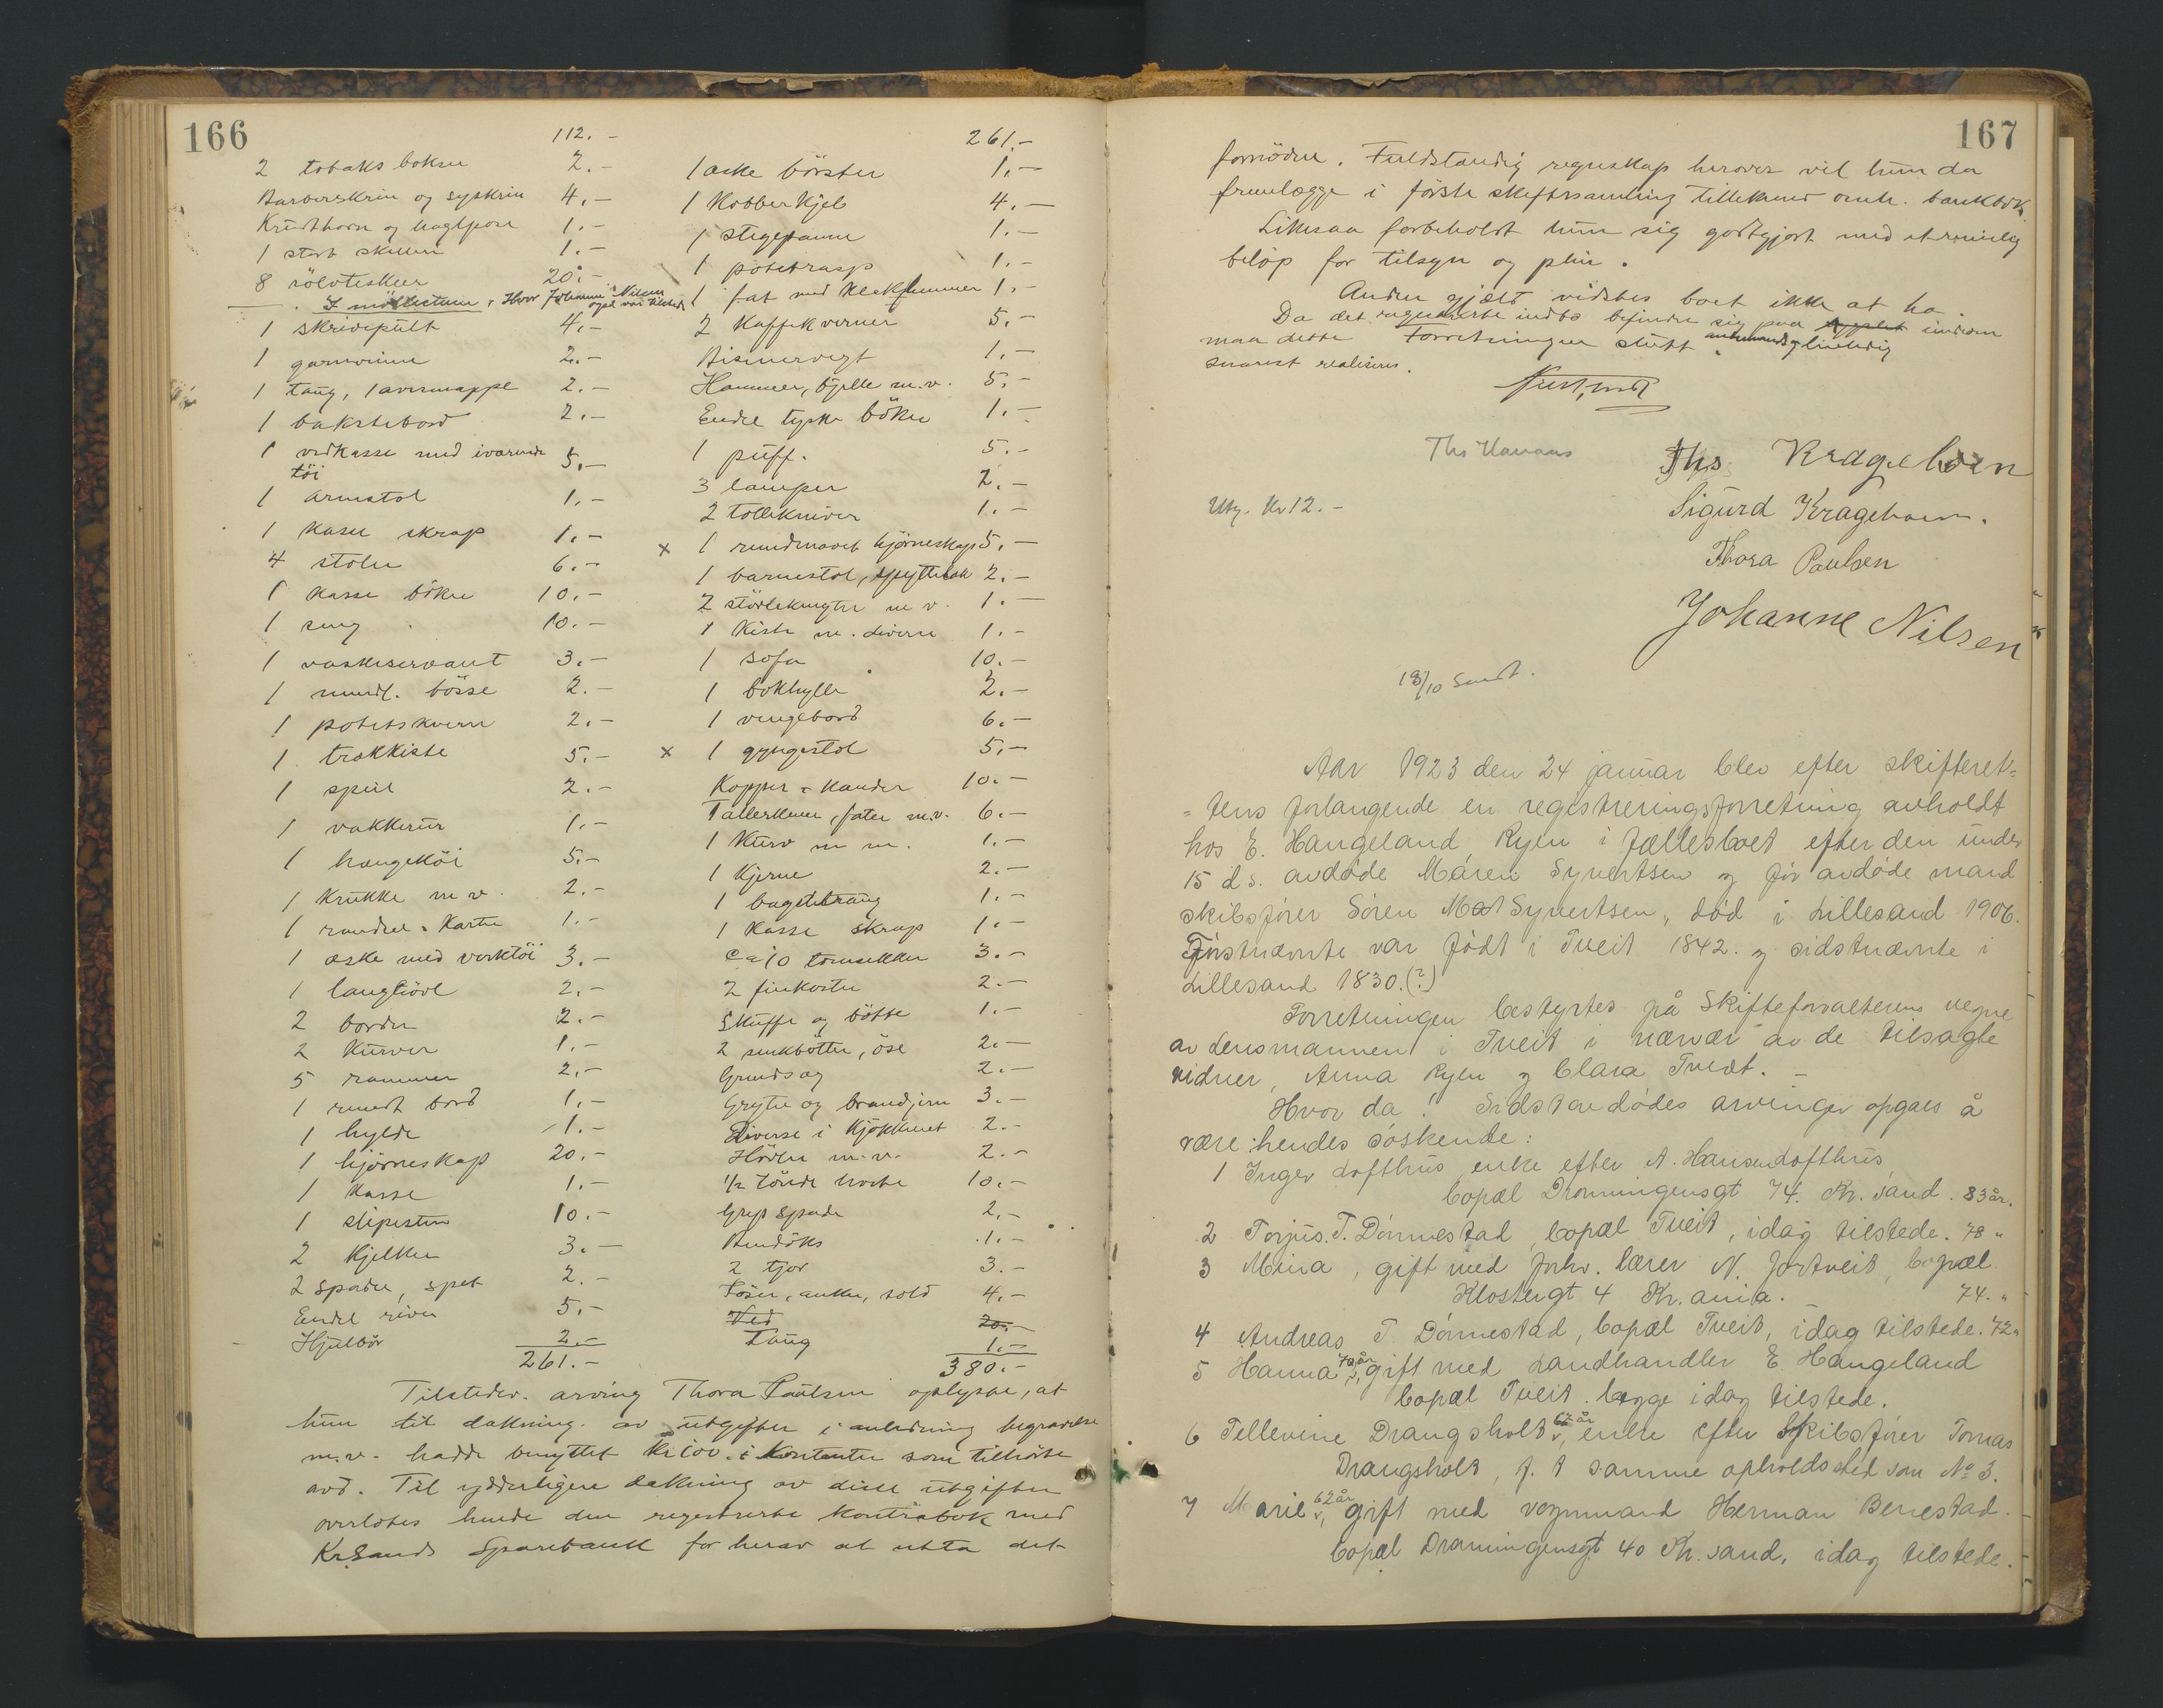 166
112.-
2 tobaks boksen 2.-
Barberskrin og syskrin 4.-
Krudthorn og haglpose 1.-
1 stort skilleri 1.-
8 sölvteskeer 20.-
Hvor Johanne Nilsen også var tilstede
1 skrivepult 4.-
1 garnvinne 2.-
1 tang, 1 avismappe 2.-
1 bakstebord 2.-
1 vedkasse med ivärende
töi 5.-
1 armstol 1.-
1 kasse skrap 1.-
4 stoler 6.-
1 kasse böker 10.-
1 seng 10.-
1 vaskeservant 3.-
1 mundl. bösse 2.-
1 potetskvern 2.-
1 trækkiste 5.-
1 speil 2.-
1 vækkerur 1.-
1 hængeköi 5.-
1 krukke m v. 2.-
1 karter 1.-
1 æske med verktöi 3.-
1 langhövl 2.-
2 border 2.-
2 kurver 1.-
5 rammer 2.-
1 rundt bord 1.-
1 hylde 1.-
1 hjörneskap 20.-
1 kasse 1.-
1 slipesten 10.-
2 kjelker 3.-
2 spader, spet 2.-
Endel river 5.-
Hjulbör 2.-
261.-
261.-
1 æske börster 1.-
1 Kobberkjel 4.-
1 stegepanne 1.-
1 potetrasp 1.-
1 fat med klæklummer 1.-
2 Kaffekverner 5.-
Bismervegt 1.-
Hammer, bjelle m.v. 5.-
Endel tyske böker 1.-
1 puff. 5.-
3 lamper 2.-
2 tollekniver 1.-
x 1 rundmavet hjörneskap 5.-
1 barnestol, spyttebak 2.-
2 stövleknegter m v. 1.-
1 Kiste m. diverse 1.-
1 sofa 10.-
1 bokhylle 2.-
1 vingebord 6.-
x 1 gyngestol 5.-
Kopper & kander 10.-
Tallerkener, fater m.v. 6.-
1 Kurv m m. 1.-
1 Kjerne 2.-
1 bagetetraug 1.-
1 Kasse skrap 1.-
Ca 10 tomsækker 3.-
2 fiekoster 2.-
Skuffe og bötte 1.-
2 sinkbötter, öse 2.-
Grindsag 2.-
Gryter og brandjern 3.-
Diverse i kjökkenet 2.-
Hövler m.v. 2.-
1/2 tönde 10.-
Grep spade 2.-
Bendöks 1.-
2 tjor 3.-
anker, sold 4.-
Ved 20.-
Taug 1.-
380.-
Tilstedev. arving Thora Paulsen oplyste, at
hun til dækning av utgifter i anledning begravelse
m.v. hadde benyttet kr 100.- i Kontanter som tilhörte
avd. Til ydderligere dækning av disse utgifter
overlotes hende den registrerte kontrabok med
Kr.Sands Sparebank for herav at utta det
167
fornödne. Fuldstændig regnskap herover vil hun da
fremlægge i förste skiftesamling tillikemed omh. bankbok.
Likesaa forbeholdt hun sig godtgjort med et rimelig
belöp for tilsyn og pleie.
Anden gjæld vidstes boet ikke at ha.
Da det registrerte indbo befinder sig paa
maa dette Forretningen slutt
snarest realiseres.
Ths Krageboen
Sigurd Krageboen.
Utg. kr 12.-
Thora Paulsen
Johanne Nilsen
18/10 Sendt.
Aar 1923 den 24 januar blev efter skifteret-
-tens forlangende en registreringsforretning avholdt
hos E. Haugeland Ryen i fællesboet efter den under
15 ds. avdöde Maren Syvertsen og för avdöde mand
skibsförer Sören Mat Syvertsen, död i Lillesand 1906.
Förstnævnte var födt i Tveit 1842. og sidstnævnte i
Lillesand 1830.(?)
Forretningen bestyrtes på Skifteforvalterens vegne
av Lensmannen i Tveit i nærvær av de tilsagte
vidner, Anna Ryen og Clara Tvedt. -
Hvor da! Sidstavdödes arvinger opgaes å
være: hendes söskende:
1 Inger Lofthus enke efter A. Hansen Lofthus,
bopæl Dronningensgt 74. Kr.sand. 83 år.
2 Torjus. T. Dönnestad, bopæl Tveit, idag tilstede. 78 "
3 Mina, gift med forhv. lærer N. Jortveit, bopæl
Klostergt 4 Kr.ania. 74. "
4 Andreas T. Dönnestad, bopæl Tveit, idag tilstede. 72 "
5 Hanna 70 år, gift med Landhandler E. Haugeland
bopæl Tveit. begge idag tilstede.
6 Tellevine Drangsholt 67 år, enke efter Skibsförer Tomas
Drangsholt, f. t samme opholdssted som No 3.
7 Marie 62 år, gift med vognmand Herman Benestad.
bopæl Dronningensgt 40 Kr.sand, idag tilstede.